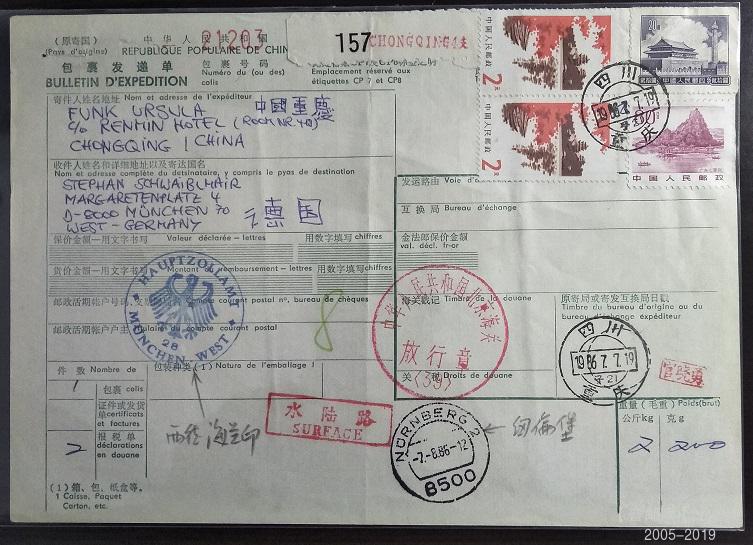 (原寄国) 中华人民共和国
(Pays d'origine) REPUBLIQUE POPULAIRE DE CHIN
包裹发递单
BULLETIN D'EXPEDITION
21203
包裹号码
Numéro du (ou des)
colis
157 CHONGQING
Emplacement réservé aux
étiquettes CP 7 et CP8
中国人民邮政
2元
中国人民邮政
2元
中国人民邮政
中国人民邮政
四川
1986.7.7.19
重庆
寄件人姓名地址 Nom et adresse de l'expéditeur
FUNK URSULA 中國重慶
c/o RENMIN HOTEL (ROOM NR
CHONGQING / CHINA
收件人姓名和详细地址以及寄达国名
Nom et adresse complète du destinataire, y compris le pyas de destination
STEPHAN SCHWAIBLMAIR
MARGARETENPLATZ 4
D-8000 MÜNCHEN 70 德国
WEST-GERMANY
发运路由 Voie d'
互换局 Bureau d'échange
保价金额—用文字书写 Valeur déclarée - lettres 用数字填写 chiffres
金法郎保价金额
val. décl. fr-or
货价金额—用文字书写 Montant remboursement - lettres 用数字填写 chiffres
邮政活期帐户号码 Compte courant postal n°, bureau de chèques
邮政活期帐户户主 Titulaire du compte courant postal
HAUPTZOLLAMT
28
MÜNCHEN-WEST
8
海关戳记 Timbre de la douane
中华人民共和国重庆海关
放行章
(39)
关 Droits de douane
原寄局或寄发互换局日戳
Timbre du bureau d'origine ou du
bureau d'échange expéditeur
四川
1986.7.7.19
重庆
件数 Nombre de
包装种类(1) Nature de l'emballage
1
包裹 colis
证件或发货
单 certificats
et factures
2
报税单
déclarations
en douane
西德海关印
水陆路
SURFACE
NÜRNBERG 2
-7.-8.86-12
8500
纽伦堡
重量(毛重) Poids(brut)
公斤kg 克g
2 200
(1)箱、包、纸盒等。
1 Caisse, Paquet
Carton, etc.
2005-2019